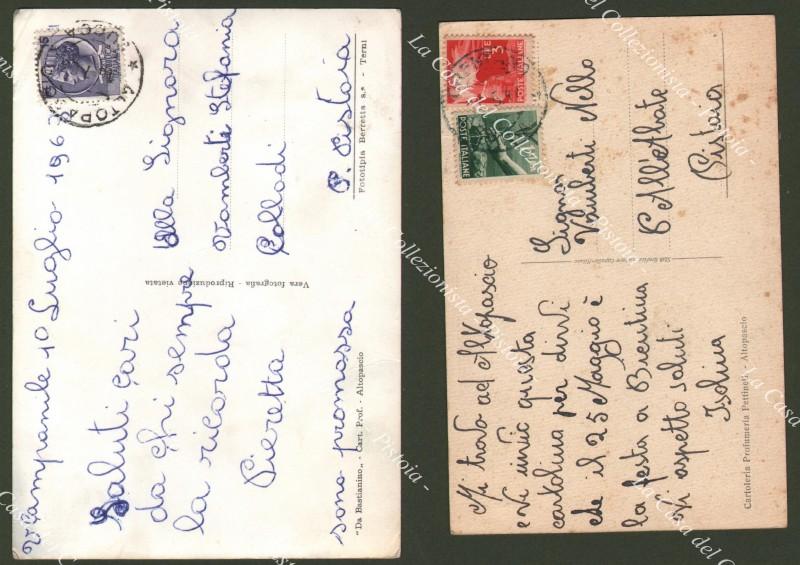 Campanile 10 Luglio 196
Saluti cari
da chi sempre
la ricorda
Pieretta
sono promossa
Alla Signora
Stefania
Collodi
P. Pistoia
Vera fotografia - Riproduzione vietata
Fototipia Berretta s.a - Terni
"Da Bastianino„ - Cart. Prof. - Altopascio
Mi trovo ad Altopascio
e vi invio questa
cartolina per dirvi
che il 25 Maggio è
la festa a Bientina
vi aspetto saluti
Isolina
Signor
Nello
P. All'Abate
Pistoia
Cartoleria Profumeria Pettineti - Altopascio
POSTE ITALIANE
POSTE ITALIANE
3
La Casa del Collezionista - Pistoia -